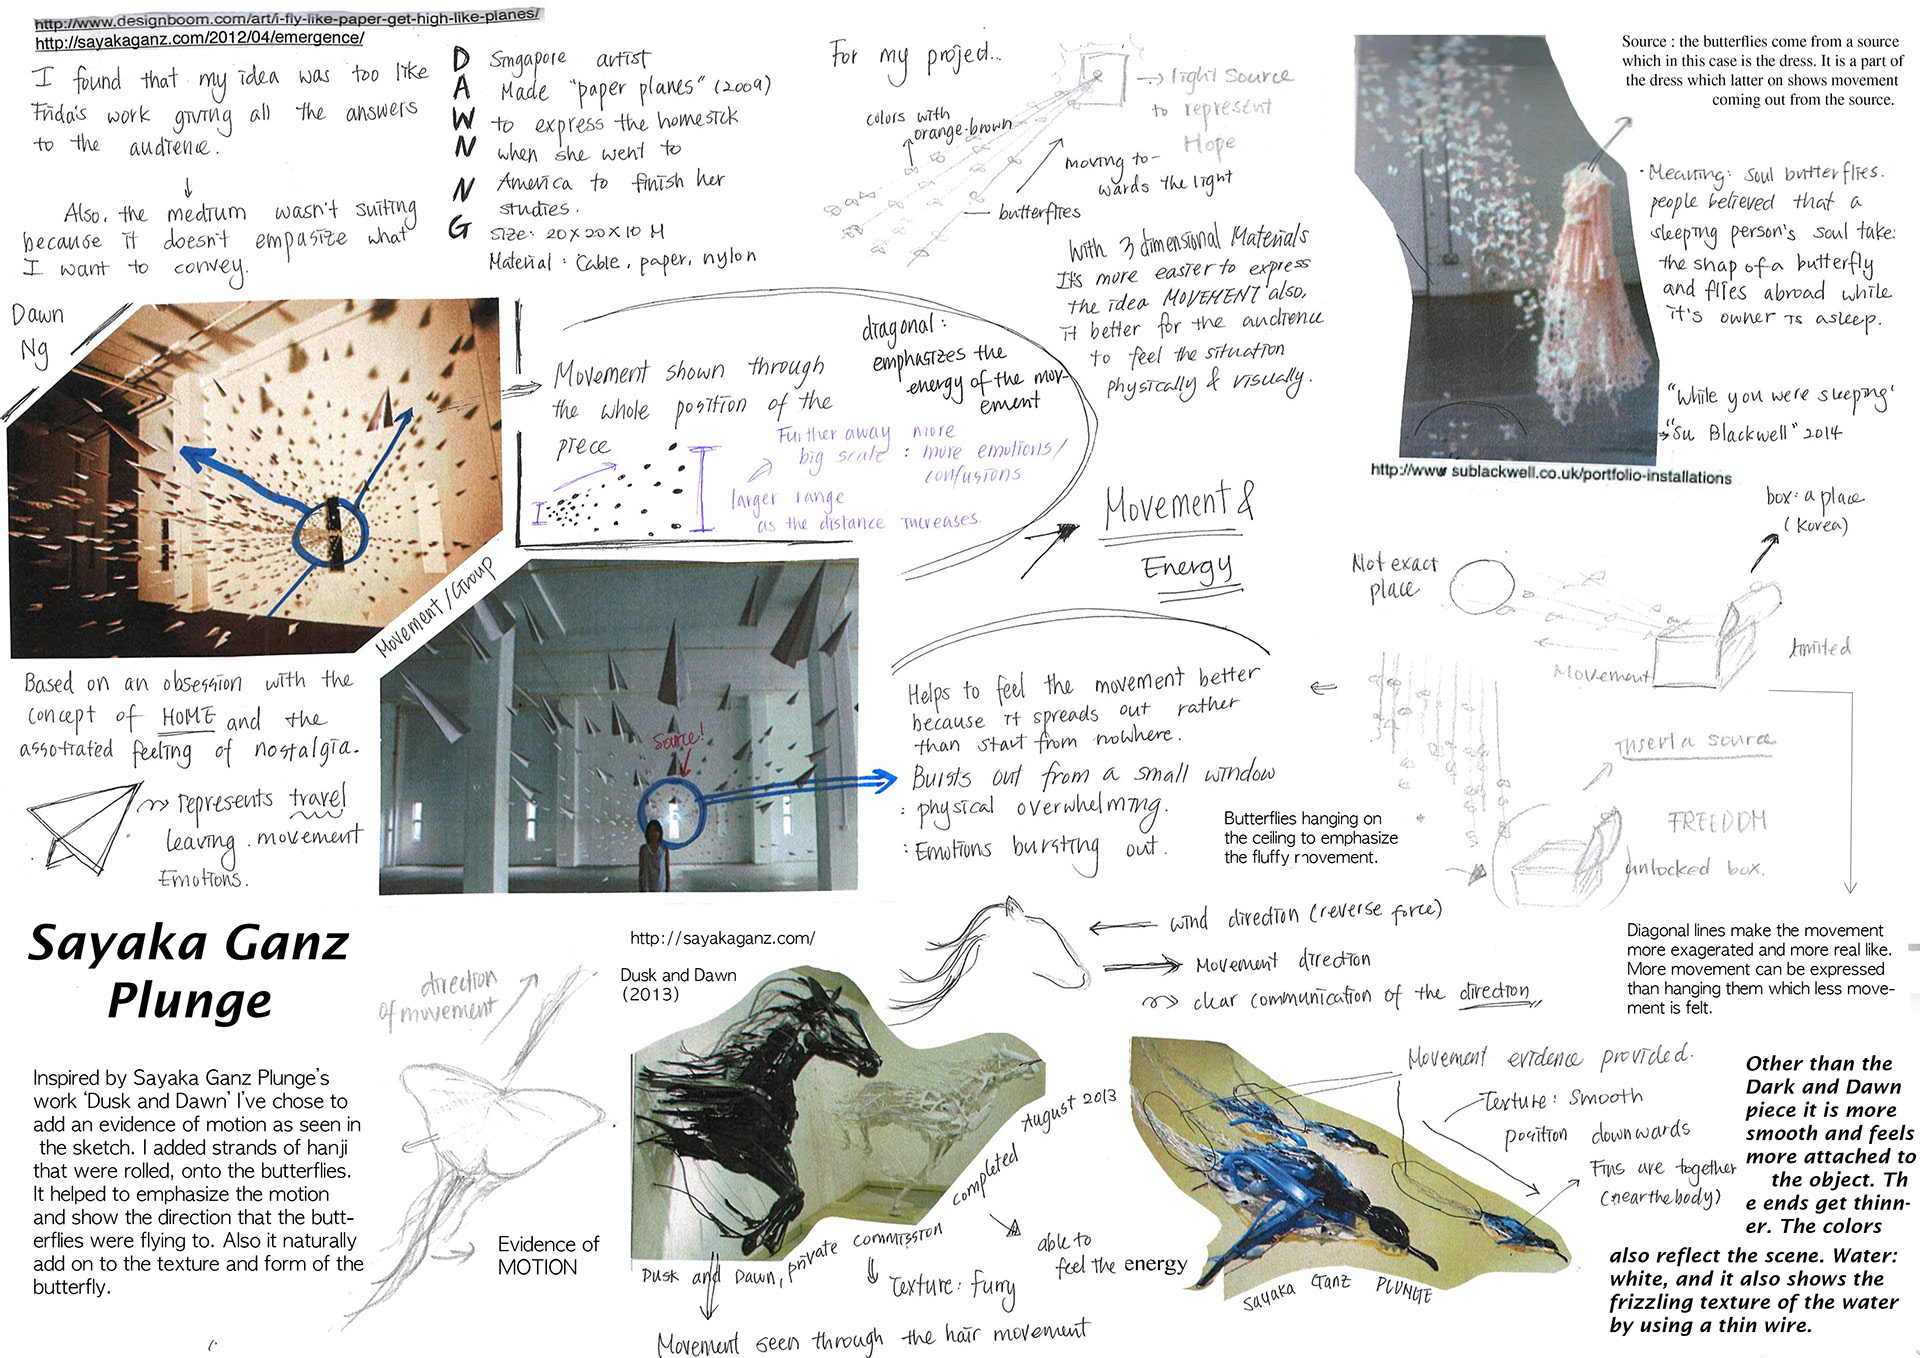 http://www.designboom.com/art/i-fly-like-paper-get-high-like-planes/
http://sayakaganz.com/2012/04/emergence/
I found that my idea was too like
Frida's work giving all the answers
to the audience.
Also, the medium wasn't suiting
because it doesn't empasize what
I want to convey.
DAWN NG
Singapore artist
Made "paper planes" (2009)
to express the homesick
when she went to
America to finish her
studies.
Size: 20 x 20 x 10 M
Material : Cable, paper, nylon
For my project...
light source
to represent
Hope
colors with
orange-brown
moving to-
wards the light
butterflies
With 3 dimensional Materials
It's more easier to express
the idea MOVEMENT also,
it better for the audience
to feel the situation
physically & visually.
Source : the butterflies come from a source
which in this case is the dress. It is a part of
the dress which latter on shows movement
coming out from the source.
· Meaning: soul butterflies.
people believed that a
sleeping person's soul take
the shap of a butterfly
and flies abroad while
it's owner is asleep.
"While you were sleeping'
"Su Blackwell" 2014
http://www sublackwell.co.uk/portfolio-installations
Dawn
Ng
Movement shown through
the whole position of the
piece
diagonal:
emphasizes the
energy of the mov-
ement
Further away more
big scale : more emotions/
confusions
larger range
as the distance increases.
Movement &
Energy
Movement/Group
box: a place
(Korea)
Not exact
place
Movement
limited
Based on an obsession with the
concept of HOME and the
assotiated feeling of nostalgia.
represents travel
leaving. movement
Emotions.
Source!
Helps to feel the movement better
because it spreads out rather
than start from nowhere.
Bursts out from a small window
: physical overwhelming.
: Emotions bursting out.
Butterflies hanging on
the ceiling to emphasize
the fluffy movement.
insert a source
FREEDOM
unlocked box.
Diagonal lines make the movement
more exagerated and more real like.
More movement can be expressed
than hanging them which less move-
ment is felt.
Sayaka Ganz
Plunge
Inspired by Sayaka Ganz Plunge's
work 'Dusk and Dawn' I've chose to
add an evidence of motion as seen in
the sketch. I added strands of hanji
that were rolled, onto the butterflies.
It helped to emphasize the motion
and show the direction that the butt-
erflies were flying to. Also it naturally
add on to the texture and form of the
butterfly.
direction
of movement
Evidence of
MOTION
http://sayakaganz.com/
Dusk and Dawn
(2013)
wind direction (reverse force)
Movement direction
clear communication of the direction
Dusk and Dawn, private commission completed August 2013
Texture: Furry
Movement seen through the hair movement
able to
feel the energy
Movement evidence provided.
Texture: Smooth
position downwards
Fins are together
(near the body)
SAYAKA GANZ PLUNGE
Other than the
Dark and Dawn
piece it is more
smooth and feels
more attached to
the object. Th
e ends get thinn-
er. The colors
also reflect the scene. Water:
white, and it also shows the
frizzling texture of the water
by using a thin wire.